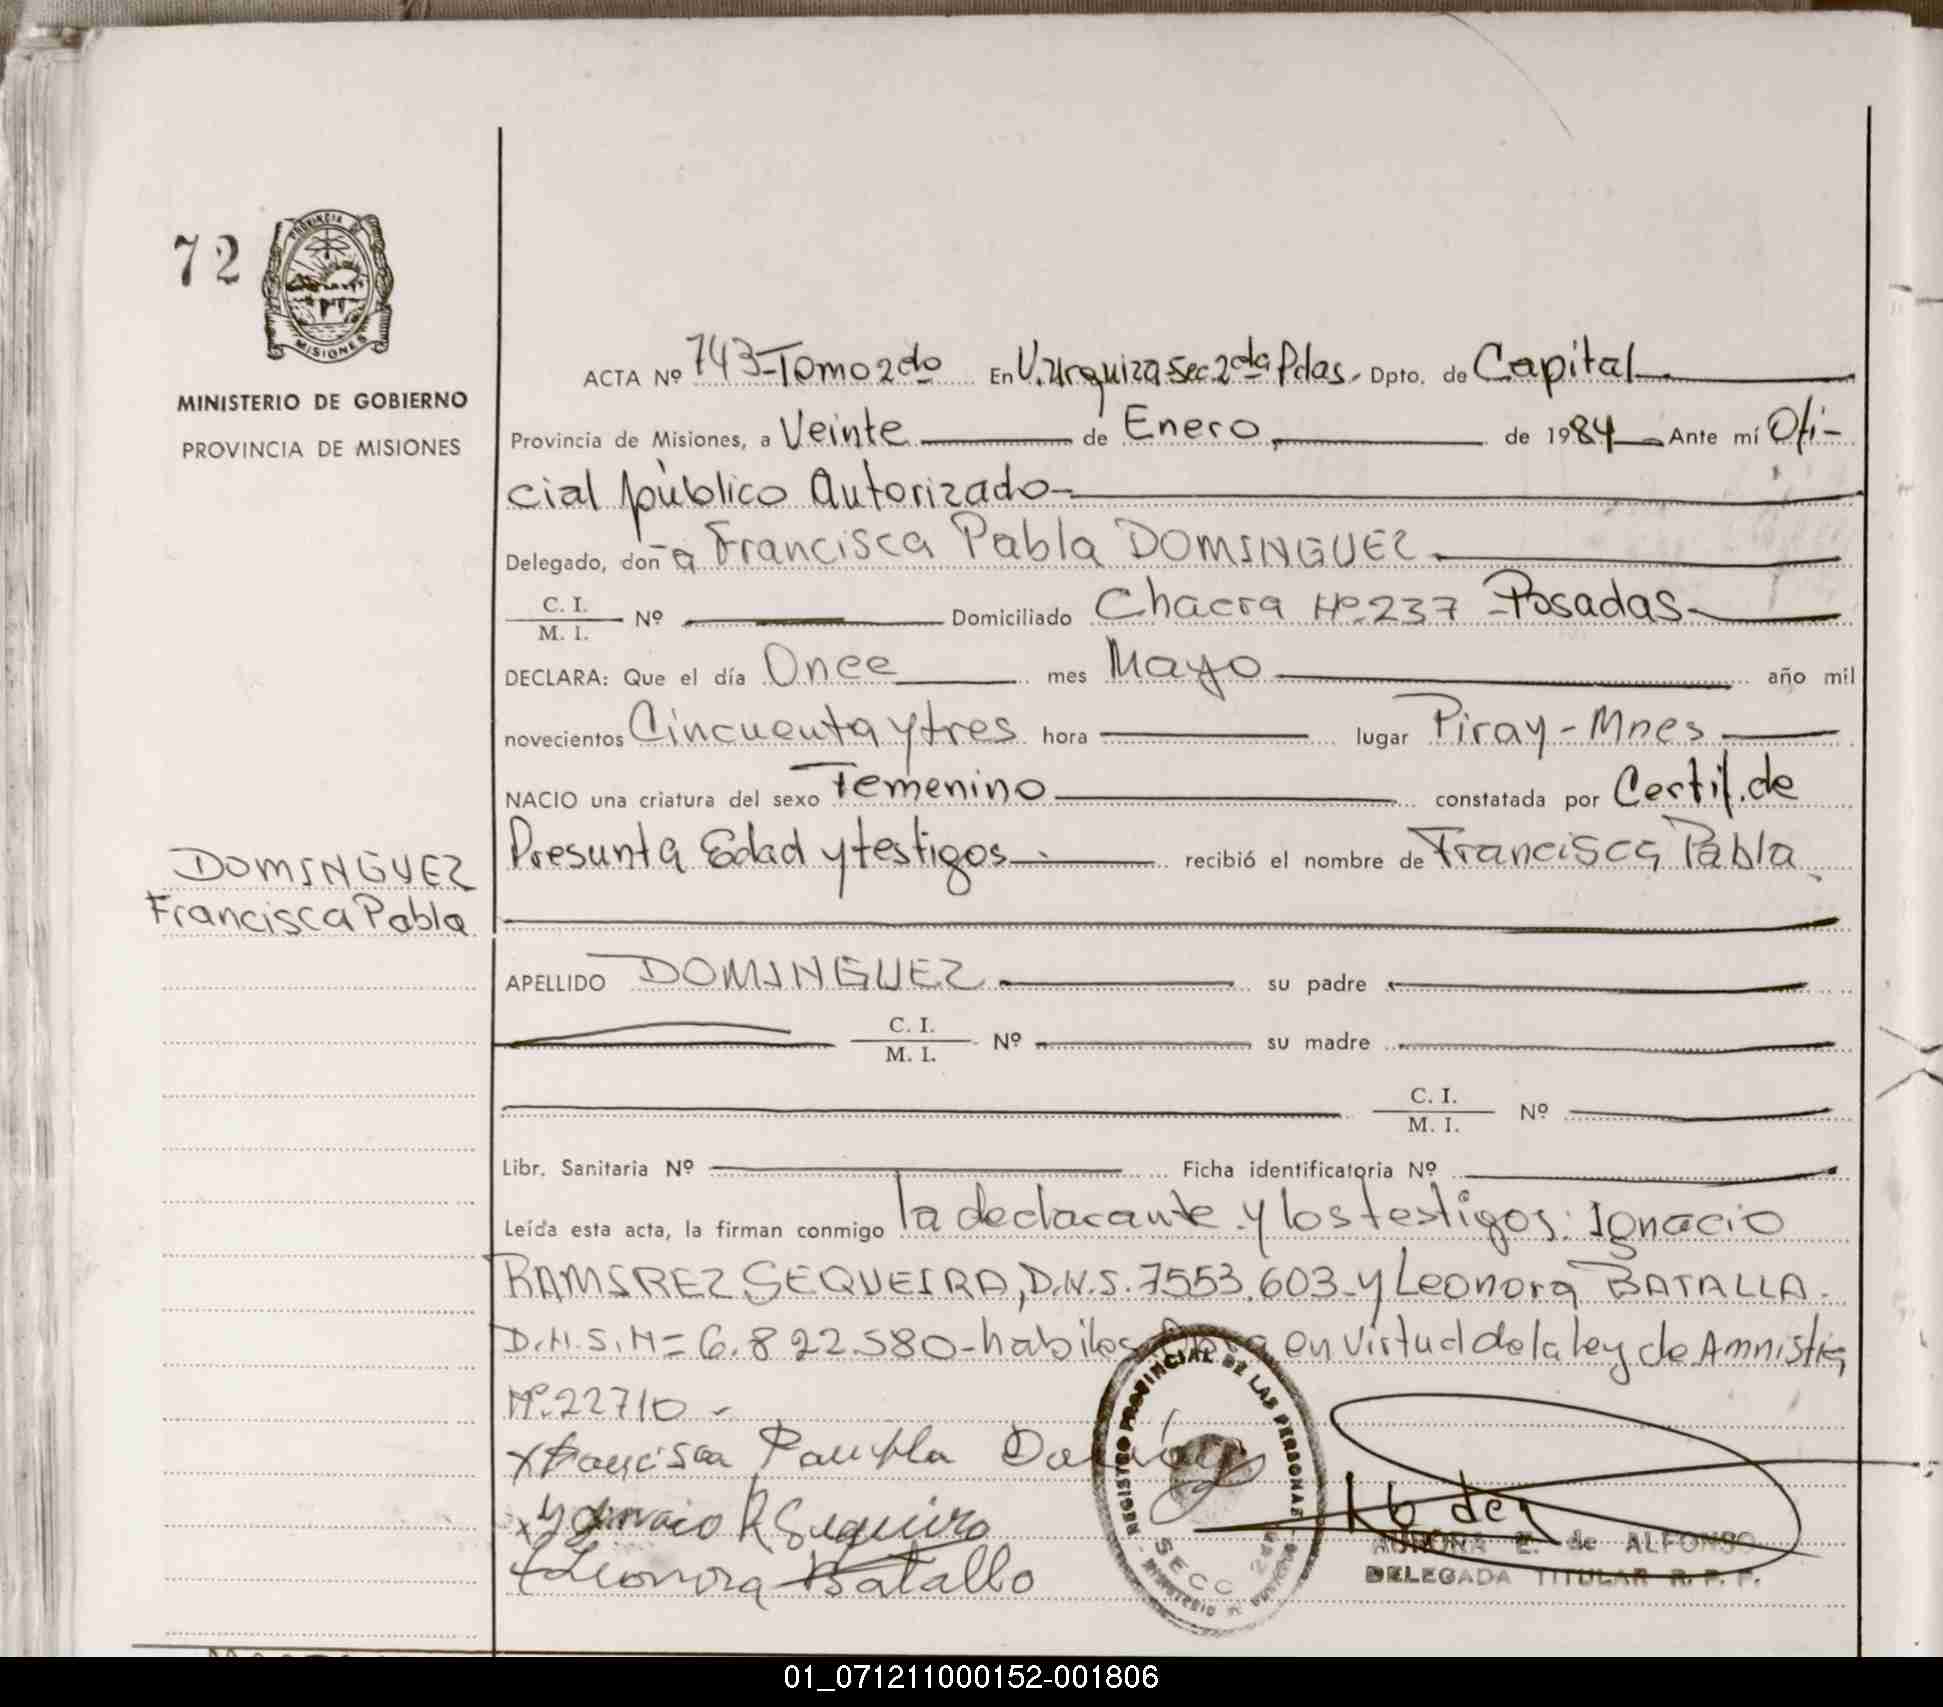 72
PROVINCIA DE
MISIONES
MINISTERIO DE GOBIERNO
PROVINCIA DE MISIONES
DOMINGUEZ
Francisca Pabla
ACTA Nº 743-Tomo 2do En V. Urquiza Sec 2da Pdas. Dpto. de Capital
Provincia de Misiones, a Veinte de Enero, de 1984 Ante mí Ofi-
cial público Autorizado
Delegado, doña Francisca Pabla DOMINGUEZ
C. I. / M. I. Nº Domiciliado Chacra Nº 237 Posadas
DECLARA: Que el día Once mes Mayo año mil
novecientos Cincuenta y tres hora lugar Piray-Mnes
NACIO una criatura del sexo Femenino constatada por Certif. de
Presunta Edad y testigos recibió el nombre de Francisca Pabla
APELLIDO DOMINGUEZ su padre
C. I. / M. I. Nº su madre
C. I. / M. I. Nº
Libr. Sanitaria Nº Ficha identificatoria Nº
Leída esta acta, la firman conmigo la declarante y los testigos: Ignacio
RAMIREZ SEQUEIRA, D.N.I. 7553.603 y Leonora BATALLA.
D.N.I. Nº 6.822.580-habiles en virtud de la ley de Amnistia
Nº 22710-
x Francisca
x Ygnacio R Sequeira
x Leonora Batalla
REGISTRO PROVINCIAL DE LAS PERSONAS
SECC 2da
MINISTERIO DE GOBIERNO
AURORA E. de ALFONSO
DELEGADA TITULAR R. P. P.
01_071211000152-001806